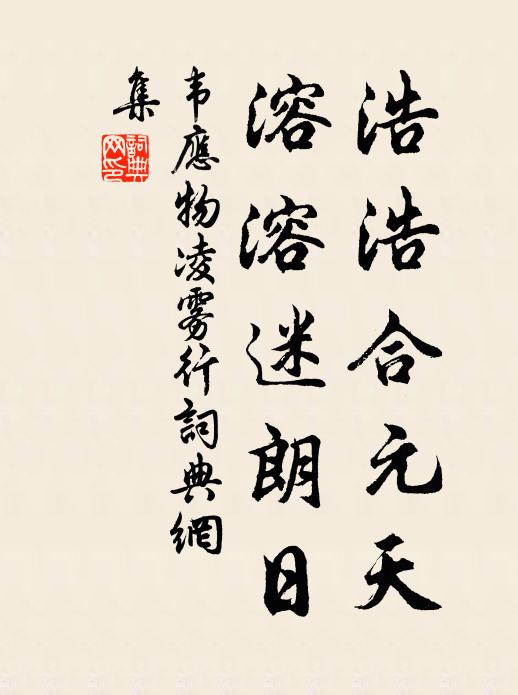 浩浩合元天
溶溶迷朗日
韦應物凌雾行詞典網
集
詞典
网印